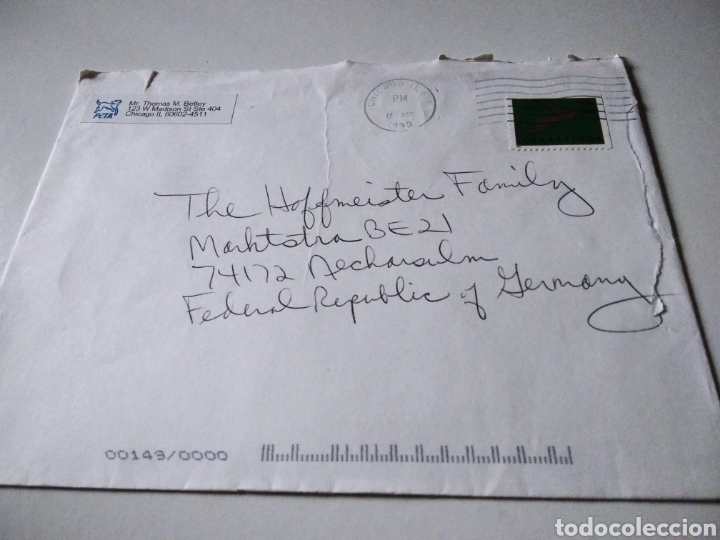 Mr. Thomas M. Betley
123 W Madison St Ste 404
Chicago IL 60602-4511
PETA
CHICAGO IL
PM
DEC
1999
The Hoffmeister Family
Marktstra BE 21
74172 Neckarsulm
Federal Republic of Germany
00149/0000
todocoleccion